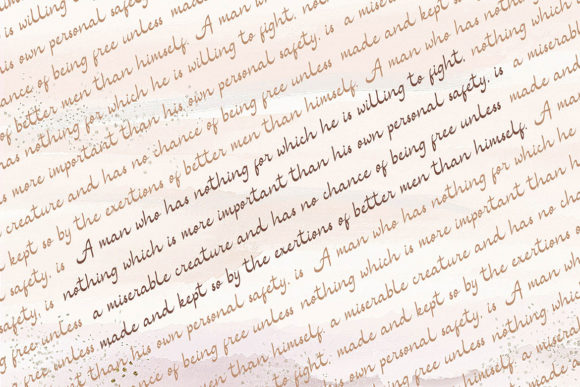 his own personal safety, is A man
ance of being free unless
of better men than himself. A man who has nothing
has nothing for which he is willing to fight, nothing which
is more important than his own personal safety, is a miserable
creature and has no chance of being free unless made and kept so
kept so by the exertions of better men than himself. A man who has nothing
safety, is A man who has nothing for which he is willing to fight, nothing which
safety, is nothing which is more important than his own personal safety, is a miserable
g free unless a miserable creature and has no chance of being free unless made and
free unless made and kept so by the exertions of better men than himself. A man
than his own personal safety, is A man who has nothing for which
chance of being free unless nothing which is more important than
of better men than himself. a miserable creature and has no
to fight, made and kept so by the exertions
personal safety, is A man who
being free unless nothing which
himself. a miserable